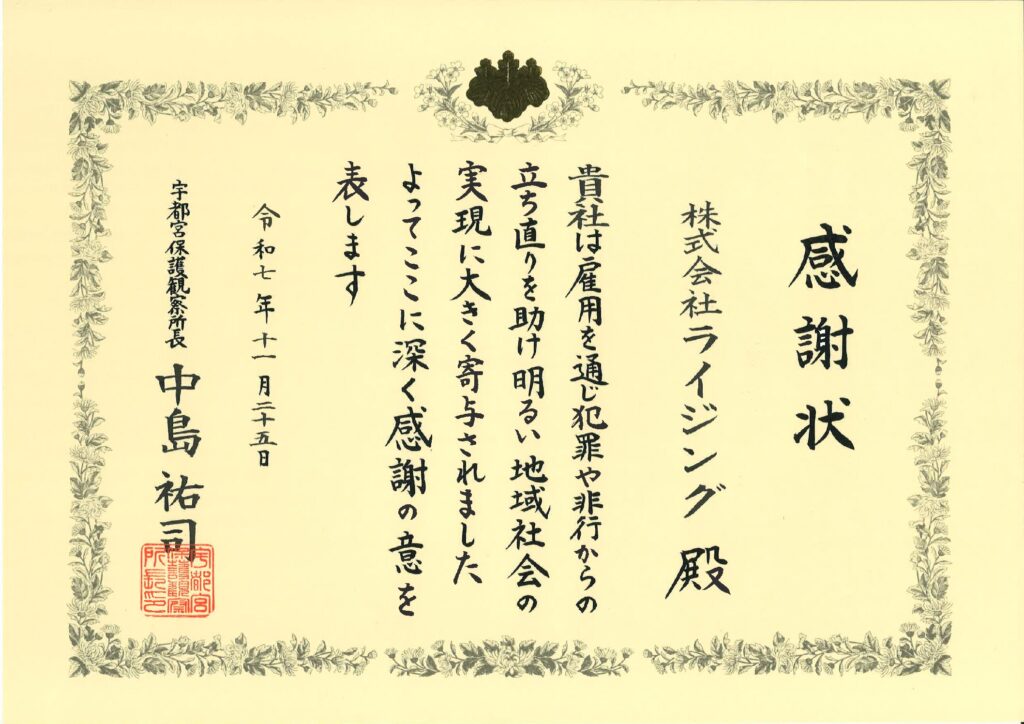 感謝状
株式会社ライジング 殿
貴社は雇用を通じ犯罪や非行からの
立ち直りを助け明るい地域社会の
実現に大きく寄与されました
よってここに深く感謝の意を
表します
令和七年十一月二十五日
宇都宮保護観察所長 中島祐司
宇都宮保護観察所長之印